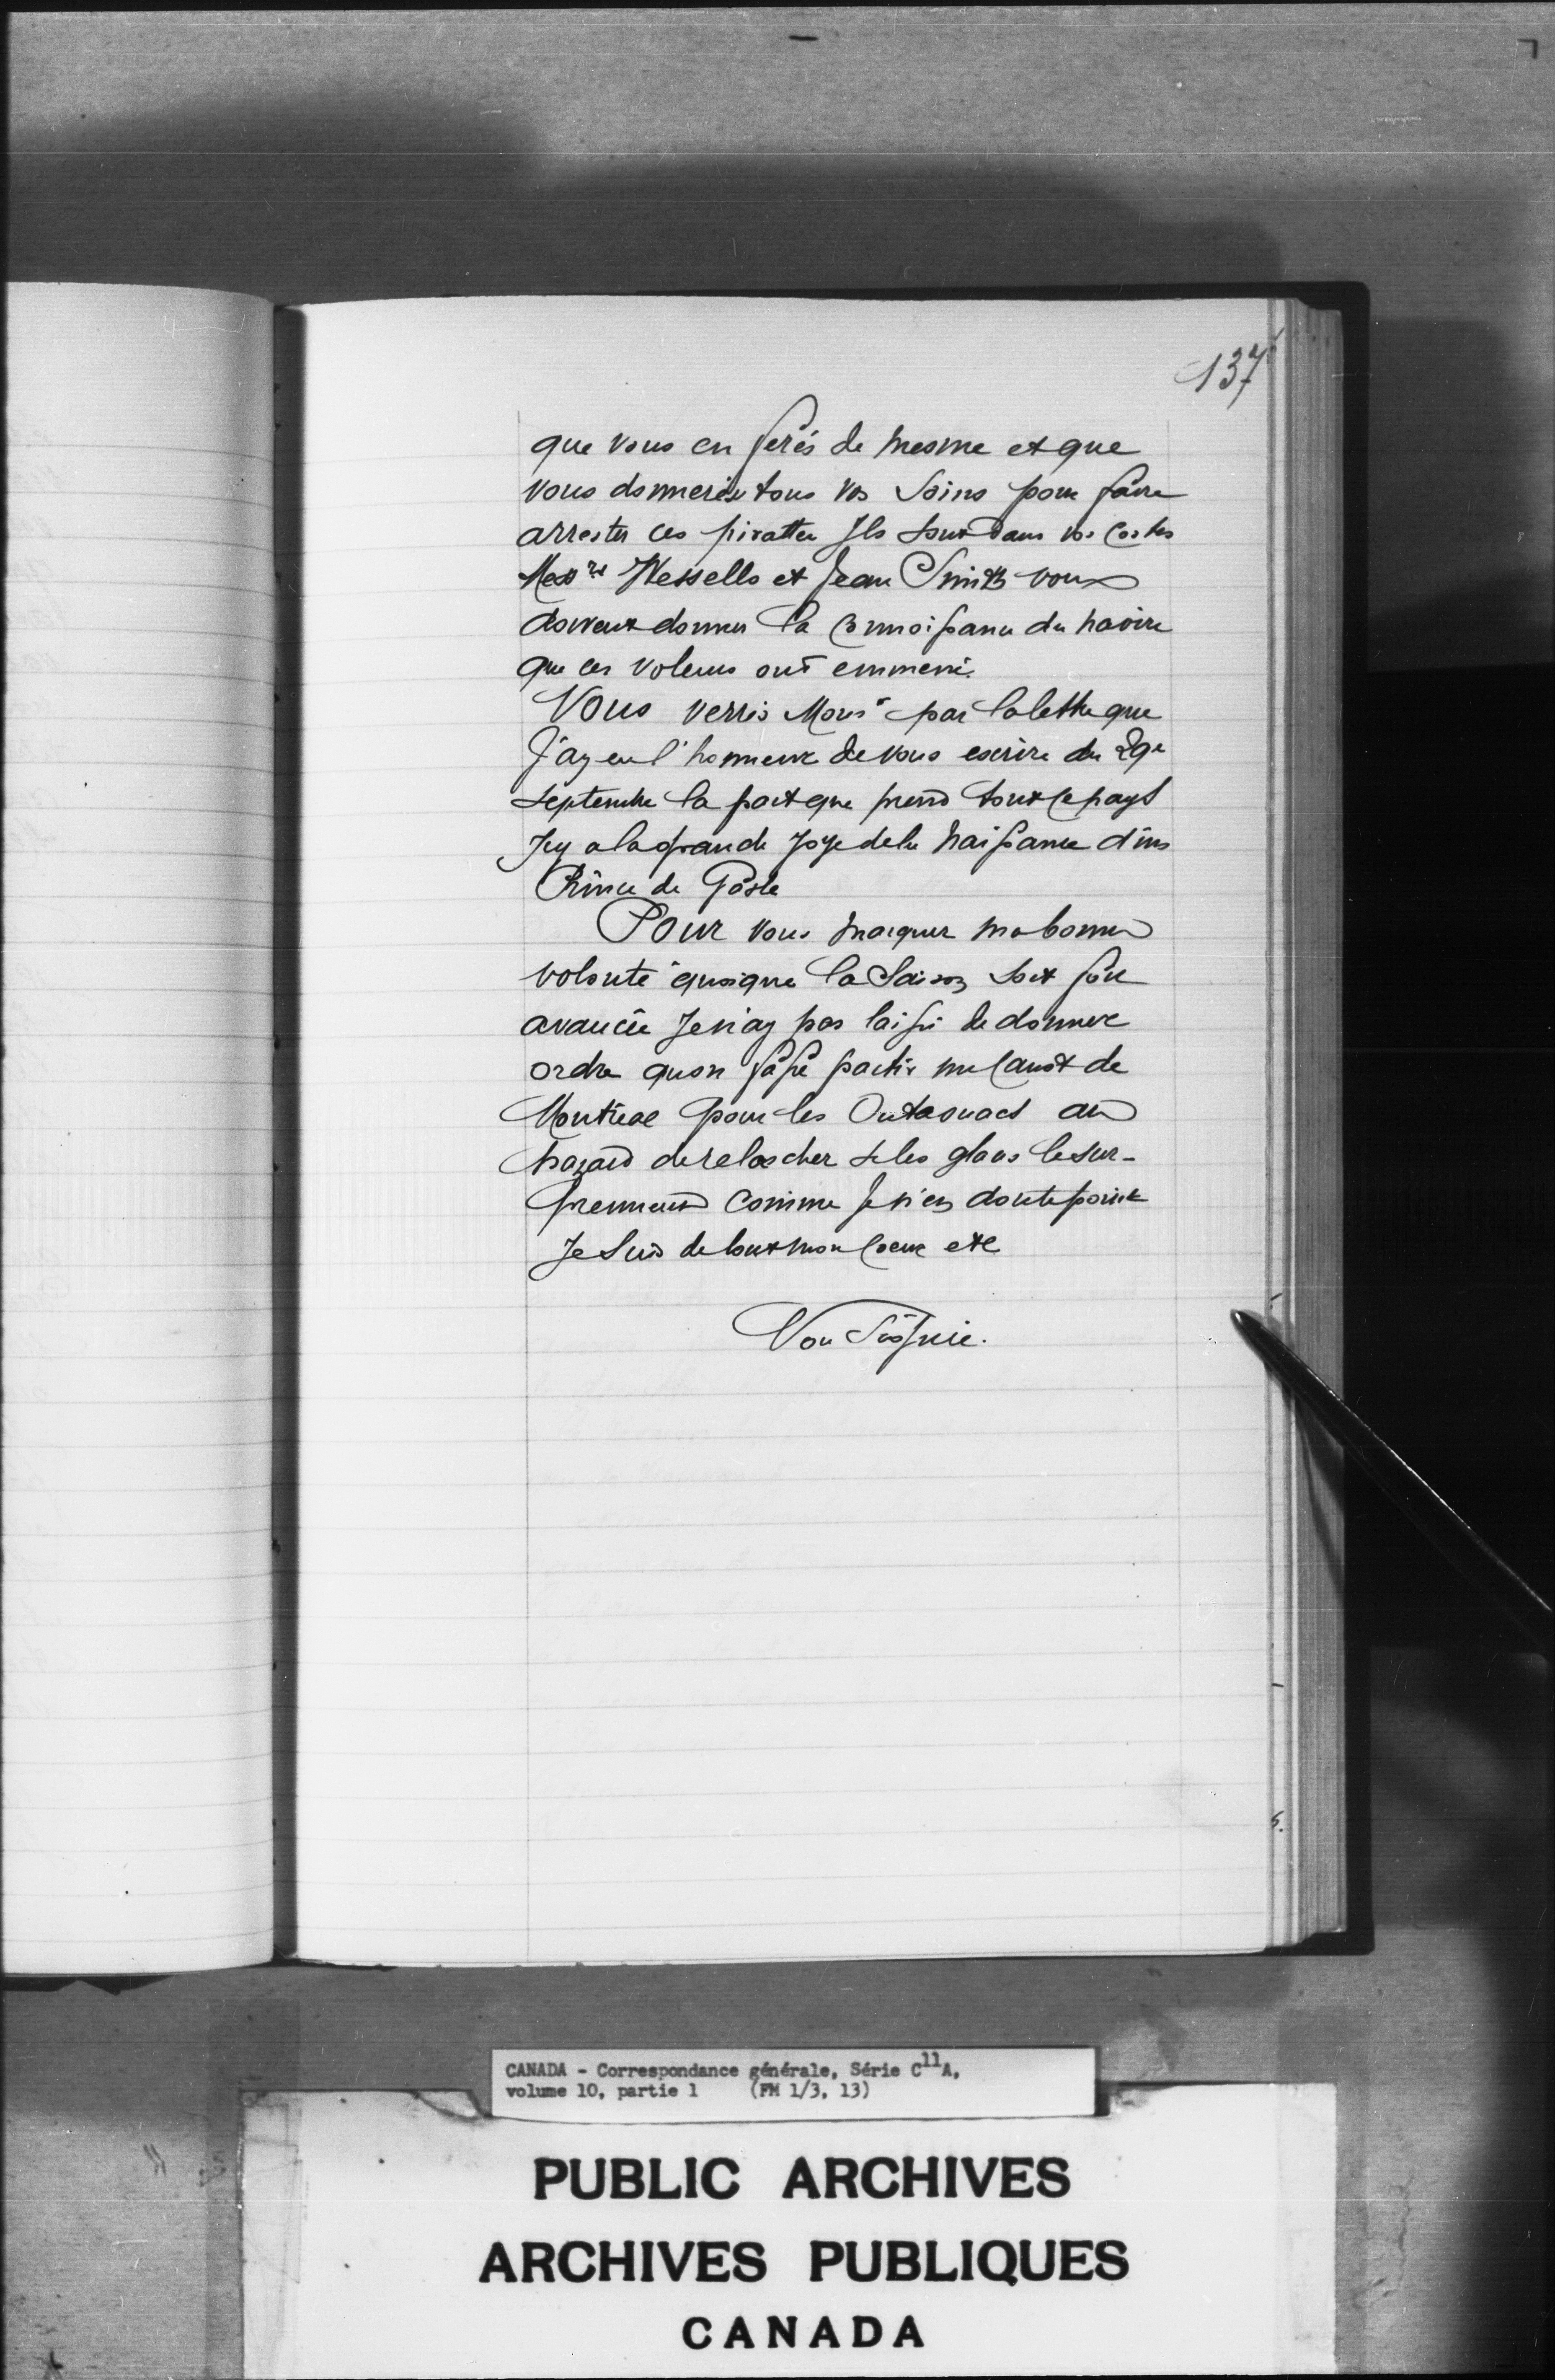 137
que vous en ferés de mesme et que
vous donneriés tous vos Soins pour faire
arrester ces piratten Ils sont dans vos Costes
Messrs Wessells et Jean Smith vous
doivent donner la Connoissance du navire
que ces voleurs ont emmené.
Vous verrés Monsr par la lettre que
J'ay eu l'honneur de vous escrire du 29e
Septembre la part que prend tout le pays
Icy a la grande Joye de la naissance d'un
Prince de Galle
Pour vous marquer ma bonne
volonté quoique la Saison soit fort
avancée Je n'ay pas laissé de donner
ordre quon fasse partir un Canot de
Montreal pour les Outaouacs au
hazard de relascher si les glaces le sur-
prennent comme Je n'en doute point
Je Suis de tout mon Coeur etc
Non Signée.
CANADA - Correspondance générale, Série C11A,
volume 10, partie 1 (FM 1/3, 13)
PUBLIC ARCHIVES
ARCHIVES PUBLIQUES
CANADA